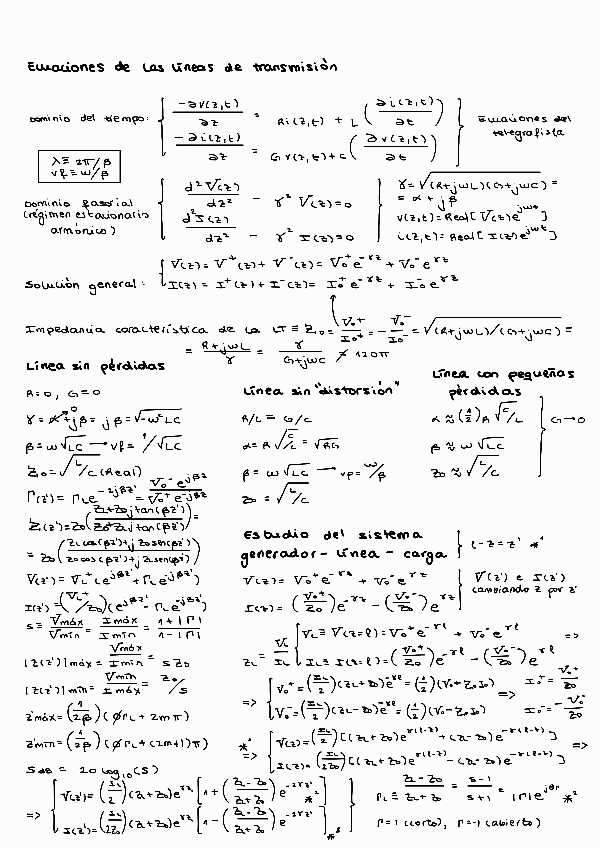 Ecuaciones de las líneas de transmisión
Dominio del tiempo: { -∂v(z,t)/∂z = Ri(z,t) + L(∂i(z,t)/∂t)
-∂i(z,t)/∂z = Gv(z,t)+C(∂v(z,t)/∂t) } Ecuaciones del telegrafista
λ = 2π/β
vf = ω/β
Dominio fasorial (régimen estacionario armónico) { d²V(z)/dz² - γ² V(z)=0
d²I(z)/dz² - γ² I(z)=0
γ=√(R+jωL)(G+jωC) =
= α + jβ
v(z,t)=Real[V(z)e^jωt]
i(z,t)=Real[I(z)e^jωt]
Solución general: { V(z)=V⁺(z)+V⁻(z)= V₀⁺e^-γz + V₀⁻e^γz
I(z)=I⁺(z)+I⁻(z)= I₀⁺e^-γz + I₀⁻e^γz
Impedancia característica de la LT ≡ Z₀ = V₀⁺/I₀⁺ = -V₀⁻/I₀⁻ = √(R+jωL)/(G+jωC) =
= R+jωL/γ = γ/G+jωC ≠ 120π
Línea sin pérdidas
R=0, G=0
γ = α+jβ = jβ = √-ω²LC
β=ω√LC → vf= 1/√LC
Z₀=√L/C (Real)
Γ(z')= Γ_L e^-2jβz' = V₀⁻e^jβz/V₀⁺e^-jβz
Z(z')=Z₀(Z_L+Z₀jtan(βz')/Z₀+Z_Ljtan(βz'))=
= Z₀(Z_Lcos(βz')+jZ₀sen(βz')/Z₀cos(βz')+jZ_Lsen(βz'))
V(z')= V_L⁺(e^jβz'+Γ_Le^-jβz')
I(z')=(V_L⁺/Z₀)(e^jβz'-Γ_Le^-jβz')
s = Vmáx/Vmín = Imáx/Imín = 1+|Γ|/1-|Γ|
|Z(z')|máx = Vmáx/Imín = sZ₀
|Z(z')|mín = Vmín/Imáx = Z₀/s
z'máx=(1/2β)(ØΓ_L + 2mπ)
z'mín=(1/2β)(ØΓ_L+(2m+1)π)
SdB = 20log₁₀(S)
Línea sin "distorsión"
R/L = G/C
α=R√C/L = √RG
β = ω√LC → vp= ω/β
Z₀ = √L/C
Línea con pequeñas pérdidas
α ≈ (1/2)R√C/L
β ≈ ω√LC
Z₀ ≈ √L/C
} G→0
Estudio del sistema generador-línea-carga } l-z=z' *'
V(z)= V₀⁺e^-γz + V₀⁻e^γz
I(z)= (V₀⁺/Z₀)e^-γz - (V₀⁻/Z₀)e^γz
} V(z') e I(z') cambiando z por z'
Z_L = V_L/I_L { V_L≡V(z=l)=V₀⁺e^-γl + V₀⁻e^γl =>
I_L≡I(z=l)=(V₀⁺/Z₀)e^-γl - (V₀⁻/Z₀)e^γl
=> { V₀⁺=(I_L/2)(Z_L+Z₀)e^γl=(1/2)(V₀+Z₀I₀)
V₀⁻=(I_L/2)(Z_L-Z₀)e^-γl=(1/2)(V₀-Z₀I₀)
=> I₀⁺= V₀⁺/Z₀
I₀⁻=-V₀⁻/Z₀
*' => { V(z)=(I_L/2)[(Z_L+Z₀)e^γ(l-z) + (Z_L-Z₀)e^-γ(l-z)]
I(z)=(I_L/2Z₀)[(Z_L+Z₀)e^γ(l-z) - (Z_L-Z₀)e^-γ(l-z)] =>
=> { V(z')=(I_L/2)(Z_L+Z₀)e^γz'[1+(Z_L-Z₀/Z_L+Z₀)e^-2γz']
I(z')=(I_L/2Z₀)(Z_L+Z₀)e^γz'[1-(Z_L-Z₀/Z_L+Z₀)e^-2γz']
Γ_L = Z_L-Z₀/Z_L+Z₀ = s-1/s+1 = |Γ|e^jθΓ *²
Γ=1 (corto), Γ=-1 (abierto)